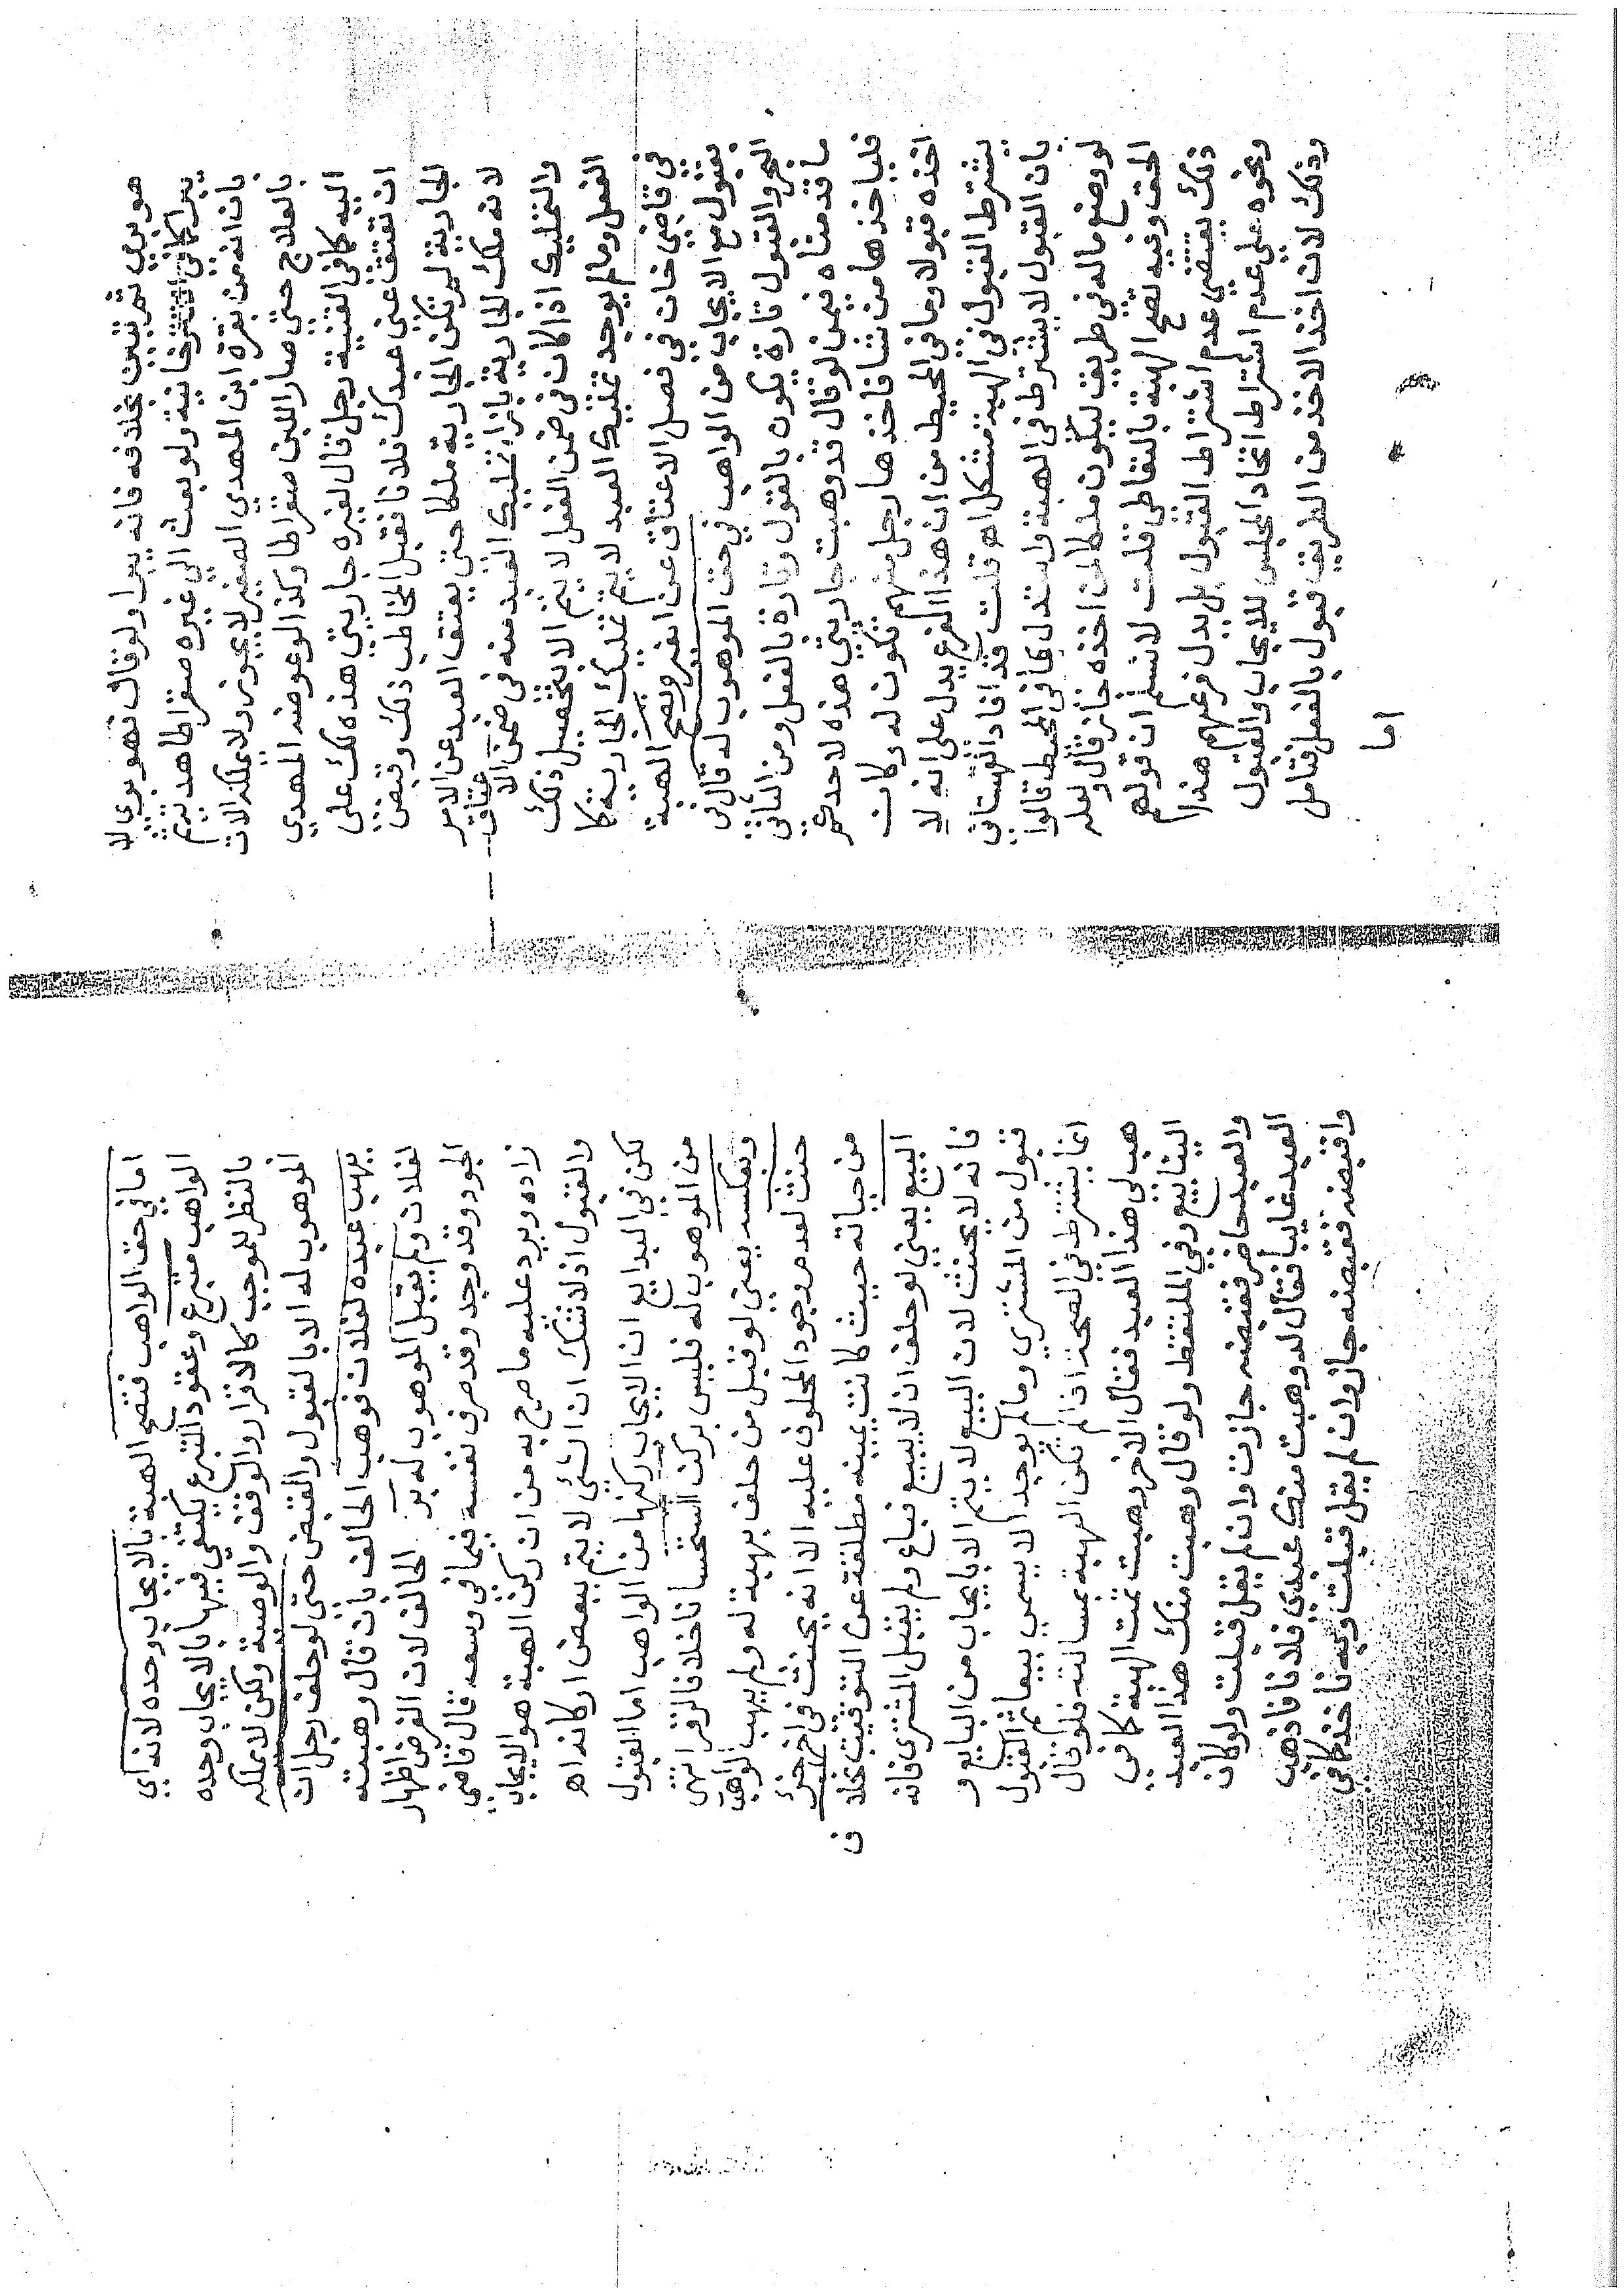 هو بري ثم تبين بخلافه فانه يبرا ولو قال نهوبري لا
يبرا كما في التترخانية ولو بعث الي غيره سقراطا هديته ثم
بان انه من بقرة ابن المهدي الصغير لا يجوز ولا يملكه الا ان
بالعلاج حتي صار اللبن سقراطا وكذا لو عوضه المهدي
اليه كما في القنية رجل قال لغيره جاريتي هذه لك علي
ان تعتق عني عبدك فلانا فقبل المخاطب ذلك وقبض
الجارية لم تكن الجارية ملكا حتي يعتق العبد عن الامر
لانه ملك الجارية بازاء تمليك العبد منه في ضمن الاعتاق
والتمليك اذا كان في ضمن الفعل لا يتم الا بتحصيل ذلك
الفعل وما لم يوجد تمليك العبد لا يتم تمليك الجارية كما
في قاضي خان في فصل الاعتاق عن الغير وتصح الهبة
بقبول مع الايجاب من الواهب في حق الموهوب له قال في
البحر والقبول تارة يكون بالقول وتارة بالفعل ومن الثاني
ما قدمناه فيمن لو قال قد وهبت جاريتي هذه لاحدكم
فلياخذها من شا فاخذها رجل منهم تكون له وكان
اخذه قبولا وما في المحيط من ان هذا الفرع يدل علي انه لا
يشترط القبول في الهبة مشكل اه قلت قد افاد القهستاني
بان القبول لا يشترط في الهبة واستدل بما في المحيط قالوا
لو وضع ماله في طريق ليكون ملكا لمن اخذه جاز قال ولعله
الحق وفيه تصح الهبة بالتعاطي قلت لا نسلم ان قولهم
ذلك يقتضي عدم اشتراط القبول بل يدل فرعهم هذا
ونحوه علي عدم اشتراط اتحاد المجلس للايجاب والقبول
وذلك لان اخذ الاخذ من الطريق قبول بالفعل فتامل
اما
اما في حق الواهب فتصح الهبة بالايجاب وحده لانه اي
الواهب متبرع وعقود التبرع يكتفي فيها بالايجاب وحده
بالنظر للموجب كالاقرار والوقف والوصية ولكن لا يملكه
الموهوب له الا بالقبول والقبض حتي لو حلف رجل ان
يهب عبده لفلان فوهب الحالف بان قال وهبته
لفلان ولم يقبل الموهوب له بر الحالف لان الغرض اظهار
الجود وقد وجد وقد صرف نفسه فيما في وسعه قال قاضي
زاده ويرد عليه ما صرح به من ان ركن الهبة هو الايجاب
والقبول اذ لا شك ان الشئ لا يتم ببعض اركانه اه
لكن في البدايع ان الايجاب ركنها من الواهب اما القبول
من الموهوب له فليس بركن استحسانا خلافا لزفر انتهى
وبعكسه يعني لو قبل من حلف بهبة له ولم يهب الواهب
حنث لعدم وجود المحلوف عليه الا انه يحنث في اخر جزء
من حياته حيث كانت يمينه مطلقة عن التوقيت بخلاف
البيع يعني لو حلف ان لا يبيع فباع ولم يقبل المشتري فانه
فانه لا يحنث لان البيع لا يتم الا بايجاب من البايع و
قبول من المشتري وما لم يوجدا لا يسمى بيعا ثم القبول
انما يشترط في الصحة اذا لم تكن الهبة بمسالة فلو قال
هب لي هذا العبد فقال الاخر وهبت تمت الهبة كما في
الينابيع وفي الملتقط ولو قال وهبت منك هذا العبد
والعبد حاضر فقبضه جازت وان لم يقل قبلت ولو كان
العبد غايبا فقال له وهبت منك عبدي فلانا فاذهب
واقبضه فقبضه جاز وان لم يقل قبلت وبه ناخذ كما في